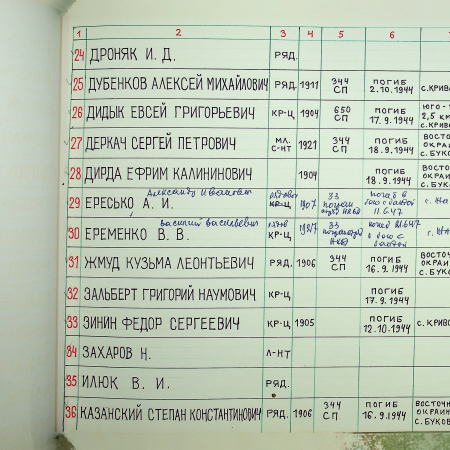 1 2 3 4 5 6
24 ДРОНЯК И. Д. РЯД.
25 ДУБЕНКОВ АЛЕКСЕЙ МИХАЙЛОВИЧ РЯД. 1911 344 СП ПОГИБ 2.10.1944 С. КРИВО
26 ДИДЫК ЕВСЕЙ ГРИГОРЬЕВИЧ КР-Ц 1904 650 СП ПОГИБ 17.9.1944 ЮГО- 2,5 КМ С. КРИВО
27 ДЕРКАЧ СЕРГЕЙ ПЕТРОВИЧ МЛ. С-НТ 1921 344 СП ПОГИБ 18.9.1944 ВОСТО ОКРАИ С. БУКО
28 ДИРДА ЕФРИМ КАЛИНИНОВИЧ 1904 ПОГИБ 18.9.1944 ВОСТО ОКРАИН С. БУКОВ
Александр Иванович
29 ЕРЕСЬКО А. И. рядовой КР-Ц 1907 33 погиб в бою с бандой 11.6.47
Василий Васильевич
30 ЕРЕМЕНКО В. В. КР-Ц 1927 33 НКВД в бою с бандой
31 ЖМУД КУЗЬМА ЛЕОНТЬЕВИЧ РЯД. 1906 344 СП ПОГИБ 16.9.1944 ВОСТО ОКРАИ С. БУКО
32 ЗАЛЬБЕРТ ГРИГОРИЙ НАУМОВИЧ КР-Ц ПОГИБ 17.9.1944
33 ЗИНИН ФЕДОР СЕРГЕЕВИЧ КР-Ц 1905 ПОГИБ 12.10.1944 С. КРИВО
34 ЗАХАРОВ Н. Л-НТ
35 ИЛЮК В. И. РЯД.
36 КАЗАНСКИЙ СТЕПАН КОНСТАНТИНОВИЧ РЯД. 1906 344 СП ПОГИБ 16.9.1944 ВОСТОЧН ОКРАИН С. БУКОВ